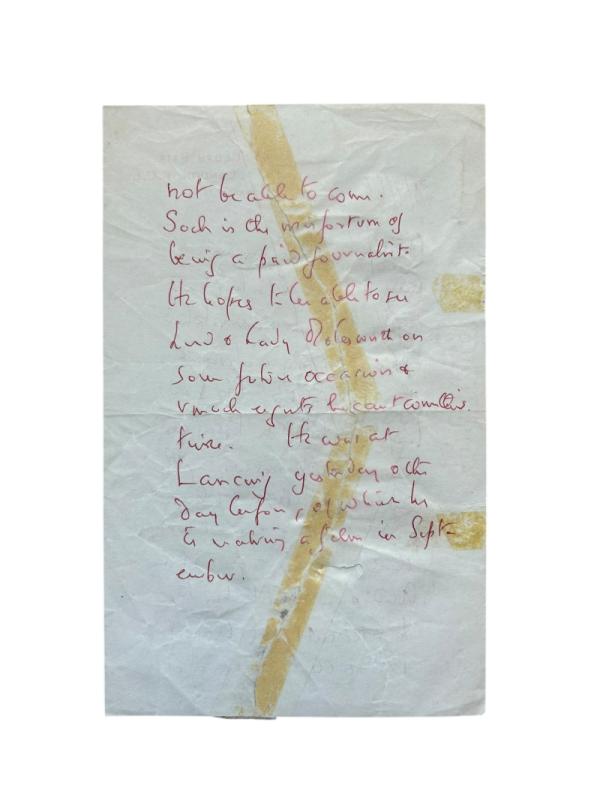 not be able to come.
Such is the misfortune of
being a paid journalist.
He hopes to be able to see
Lord & Lady Molesworth on
some future occasion &
v much regrets he cant come this
time. He was at
Lancing yesterday & the
day before, of which he
is making a film in Sept-
ember.